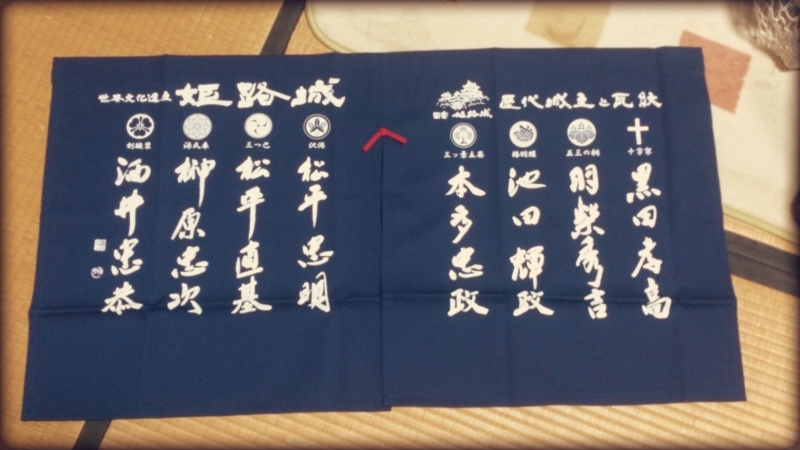 世界文化遺産 姫路城
歴代城主と瓦紋
国宝 姫路城
十字架
黒田孝高
五三の桐
羽柴秀吉
揚羽蝶
池田輝政
三ッ葉立葵
本多忠政
沢潟
松平忠明
三つ巴
松平直基
源氏車
榊原忠次
剣酸漿
酒井忠恭